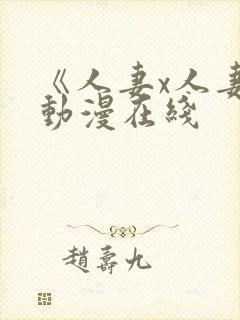 《人妻x人妻
動漫在綫
趙壽九